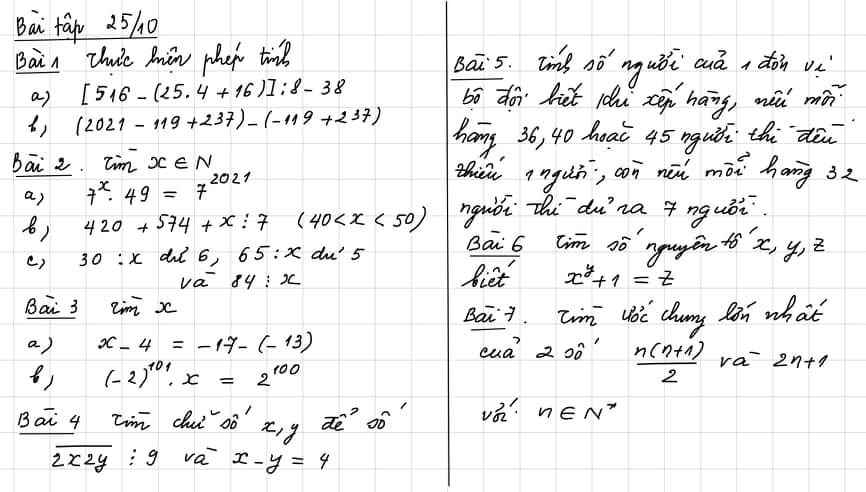 Bài tập 25/10
Bài 1 Thực hiện phép tính
a) [516 - (25.4 + 16)] : 8 - 38
b) (2021 - 119 + 237) - (-119 + 237)
Bài 2. Tìm x ∈ N
a) 7^x . 49 = 7^2021
b) 420 + 574 + x ⋮ 7 (40 < x < 50)
c) 30 : x dư 6, 65 : x dư 5
và 84 ⋮ x
Bài 3 Tìm x
a) x - 4 = -17 - (-13)
b) (-2)^101 . x = 2^100
Bài 4 Tìm chữ số x, y để số
2x2y ⋮ 9 và x - y = 4
Bài 5. Tính số người của 1 đơn vị
bộ đội biết khi xếp hàng, nếu mỗi
hàng 36, 40 hoặc 45 người thì đều
thiếu 1 người, còn nếu mỗi hàng 32
người thì dư ra 7 người.
Bài 6 Tìm số nguyên tố x, y, z
biết x^y + 1 = z
Bài 7. Tìm ước chung lớn nhất
của 2 số n(n+1)/2 và 2n+1
với n ∈ N*